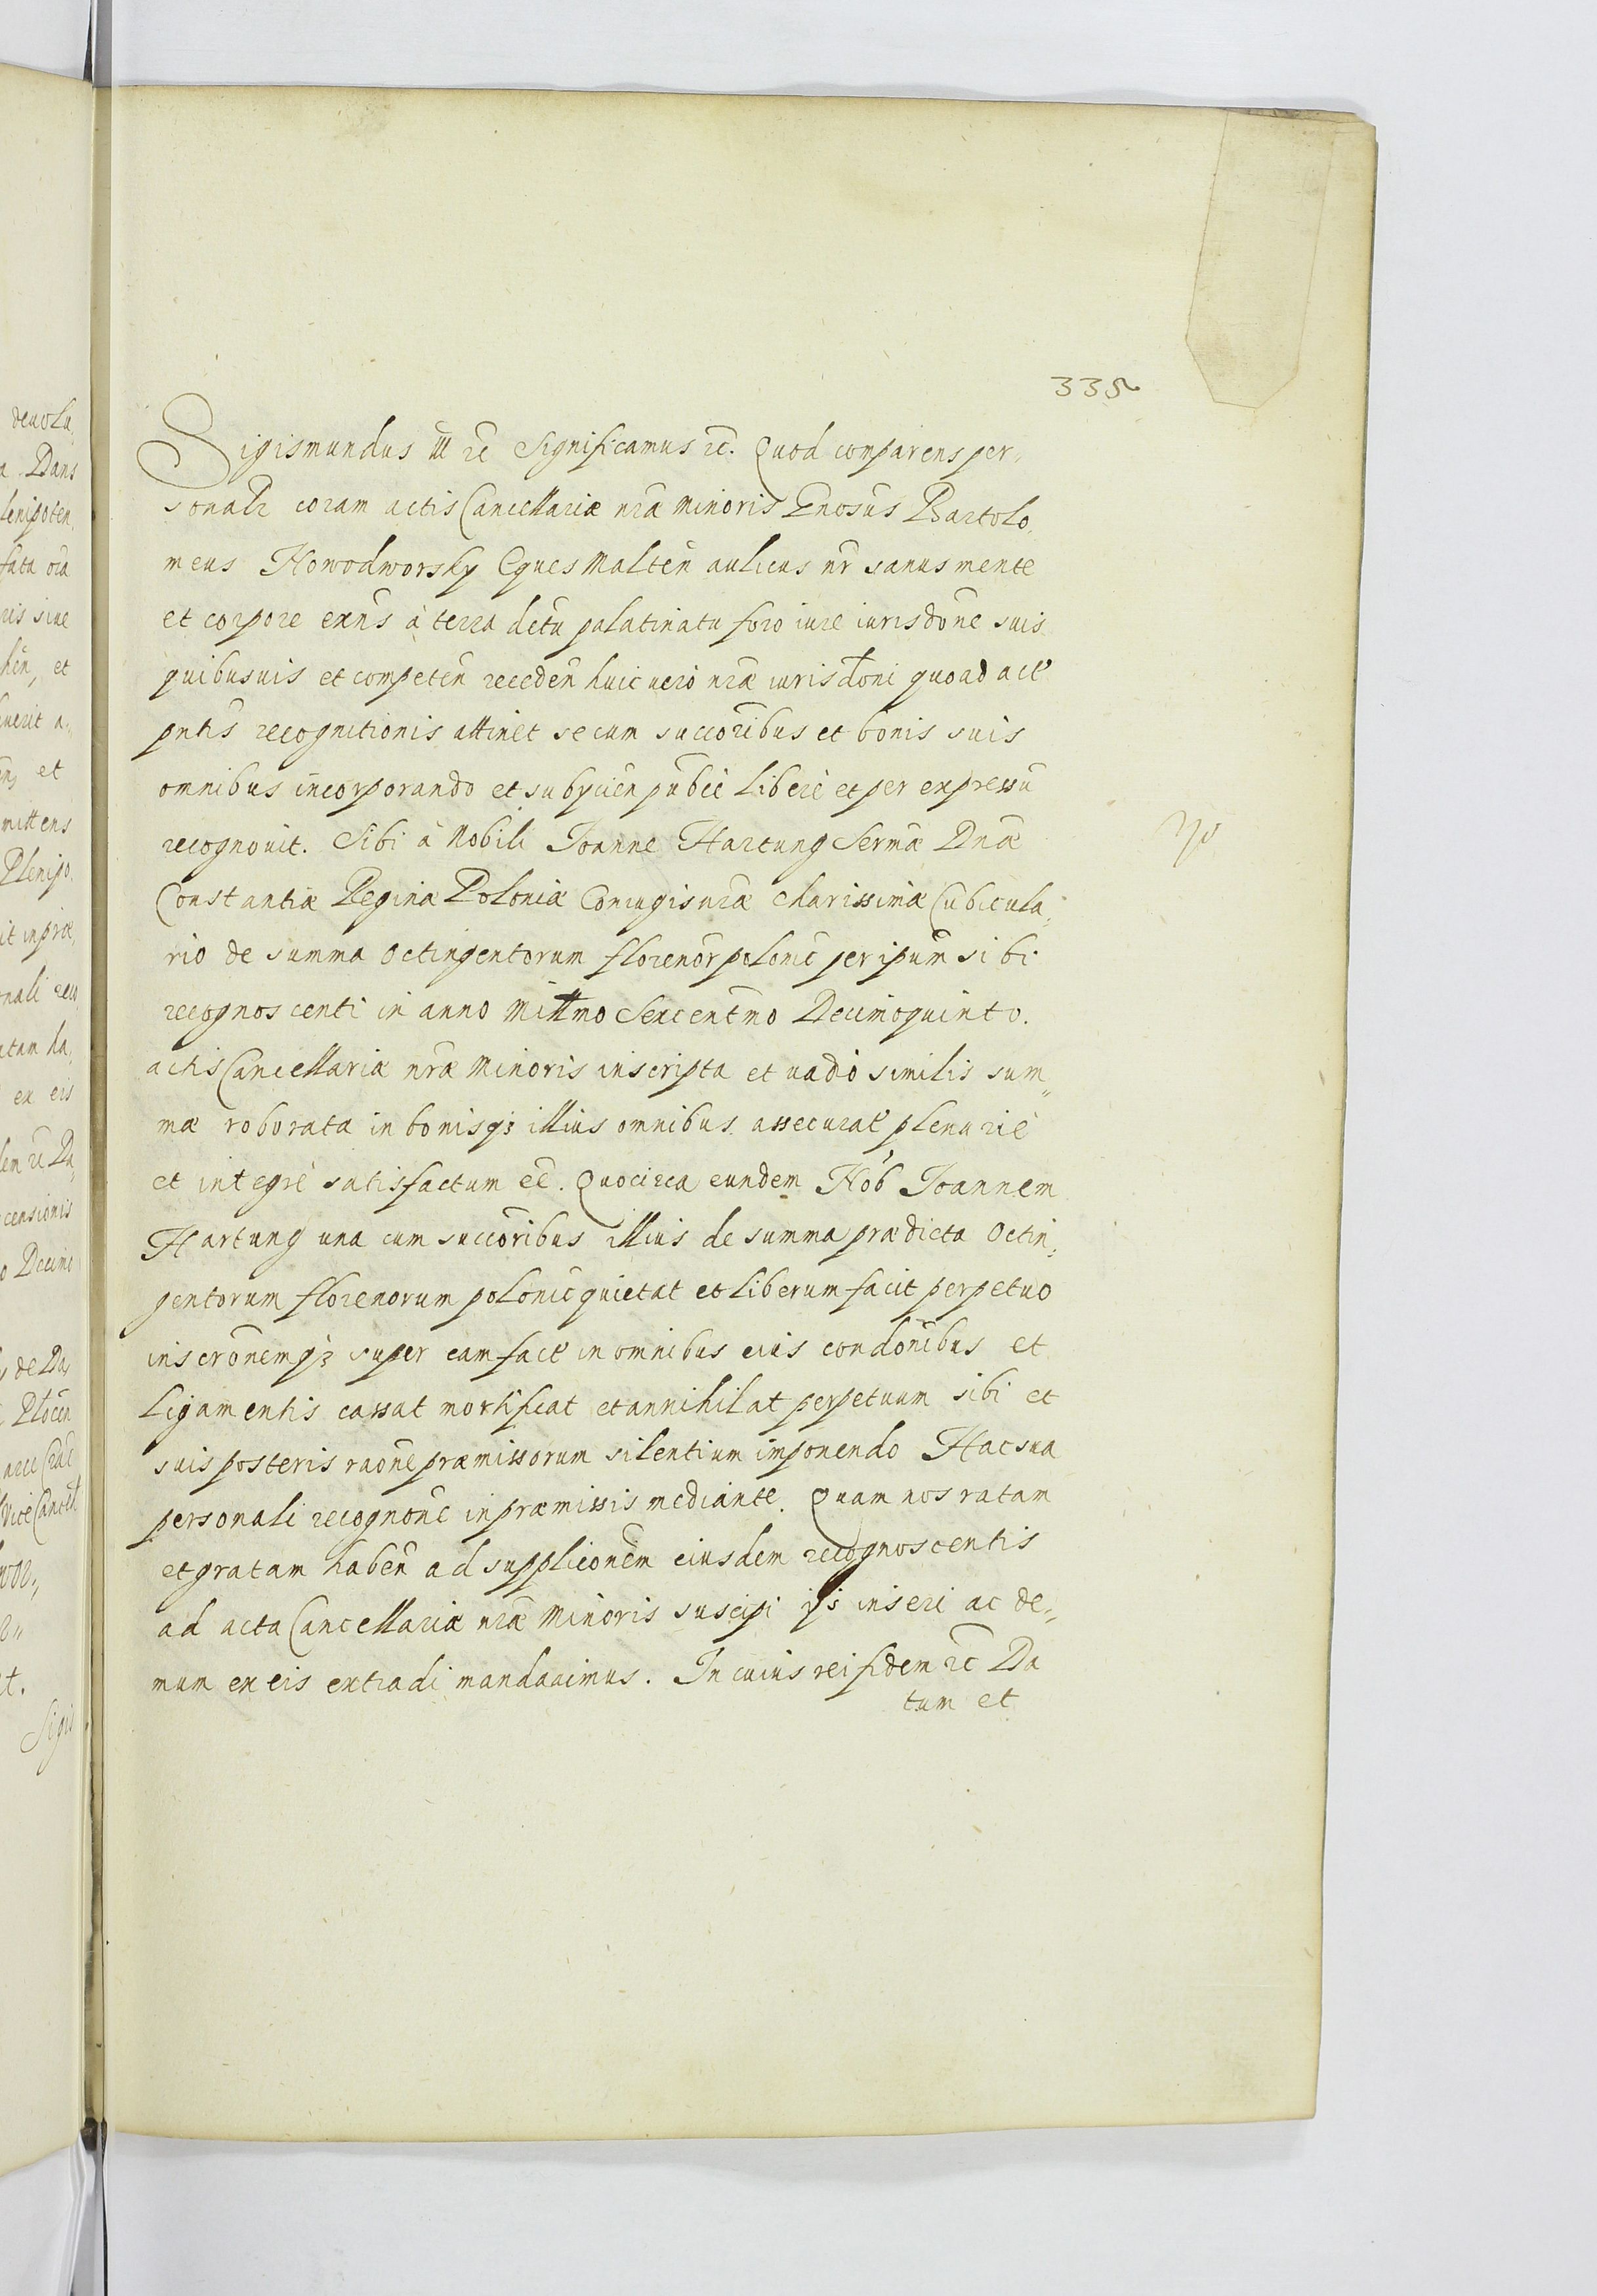 335
Sigismundus III ꝛc Significamus ꝛc. Quod comparens per,
sonalr coram actis Cancellariæ nræ Minoris Gnosus Bartolo,
meus Nowodworsky Eques Malten aulicus nr sanus mente
et corpore exns à terra dictu palatinatu foro iure iurisdone suis
quibusuis et competen receden huic uero nræ iurisdoni quoad act
pntis recognitionis attinet se cum succoribus et bonis suis
omnibus incorporando et subijcien publice libere et per expressu
recognouit. Sibi à Nobili Joanne Hartung Sermæ Dnæ
Constantiæ Reginæ Poloniæ Coniugis nræ charissimæ Cubicula,
rio de summa Octingentorum florenor polonic per ipsum sibi
recognoscenti in anno Millmo Sexcentmo Decimoquinto.
actis Cancellariæ nræ Minoris inscripta et uadio similis sum„
mæ roborata in bonisqꝫ illius omnibus assecurat plenarie
et integre satisfactum ee. Quocirca eundem Nob Joannem
Hartung una cum succoribus illius de summa prædicta Octin,
gentorum florenorum polonic quietat et liberum facit perpetuo
inscronemqꝫ super eam fact in omnibus eius condonibus et
ligamentis cassat mortificat et annihilat perpetuum sibi et
suis posteris raone præmissorum silentium imponendo Hac sua
personali recognone in præmissis mediante. Quam nos ratam
et gratam haben ad supplicionem eiusdem recognoscentis
ad acta Cancellariæ nræ Minoris suscipi ijs inseri ac de„
mum ex eis extradi mandauimus. In cuius rei fidem ꝛc Da
tum et